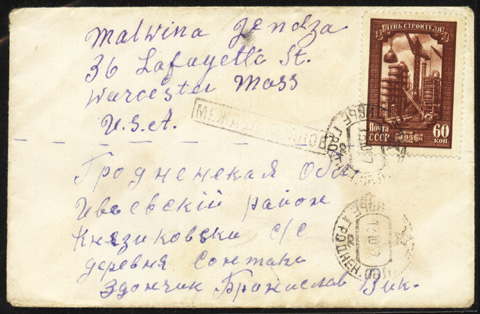 Malwina Jendza
36 Lafayetta St.
Worcester Mass
U.S.A.
ДЕНЬ СТРОИТЕЛЯ
Почта
СССР
1956
60
коп
Гродненская Обл
Ивьевский район
Князиковски с/с
деревня Сонтаки
Здончик Бронислав Вик.